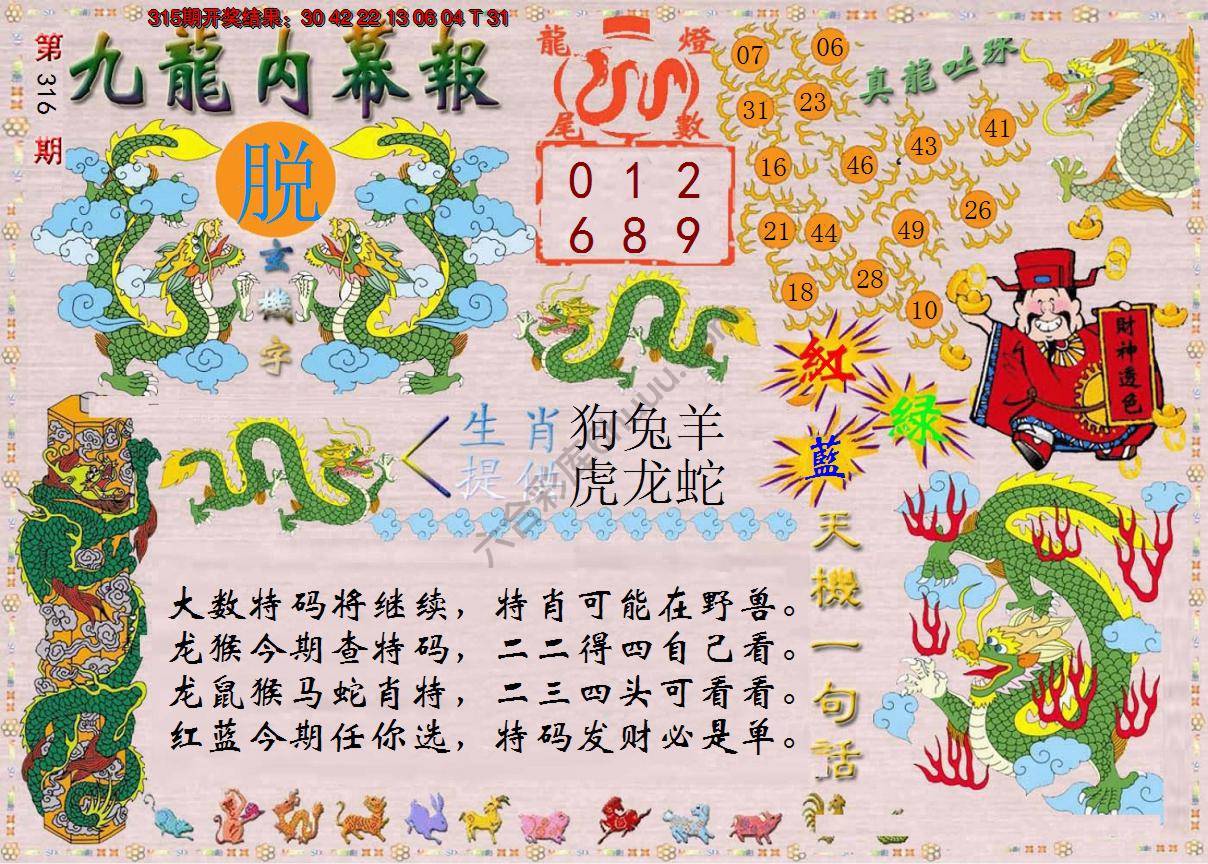 315期开奖结果：30 42 22 13 06 04 T 31
第316期
九龍内幕報
脱
玄機字
龍燈尾數
0 1 2
6 8 9
真龍吐珠
07 06
31 23
43 41
16 46
26
21 44 49
28
18 10
財神透色
紅
綠
藍
生肖 狗兔羊
提供 虎龙蛇
六合彩库
天機一句話
大数特码将继续，特肖可能在野兽。
龙猴今期查特码，二二得四自己看。
龙鼠猴马蛇肖特，二三四头可看看。
红蓝今期任你选，特码发财必是单。